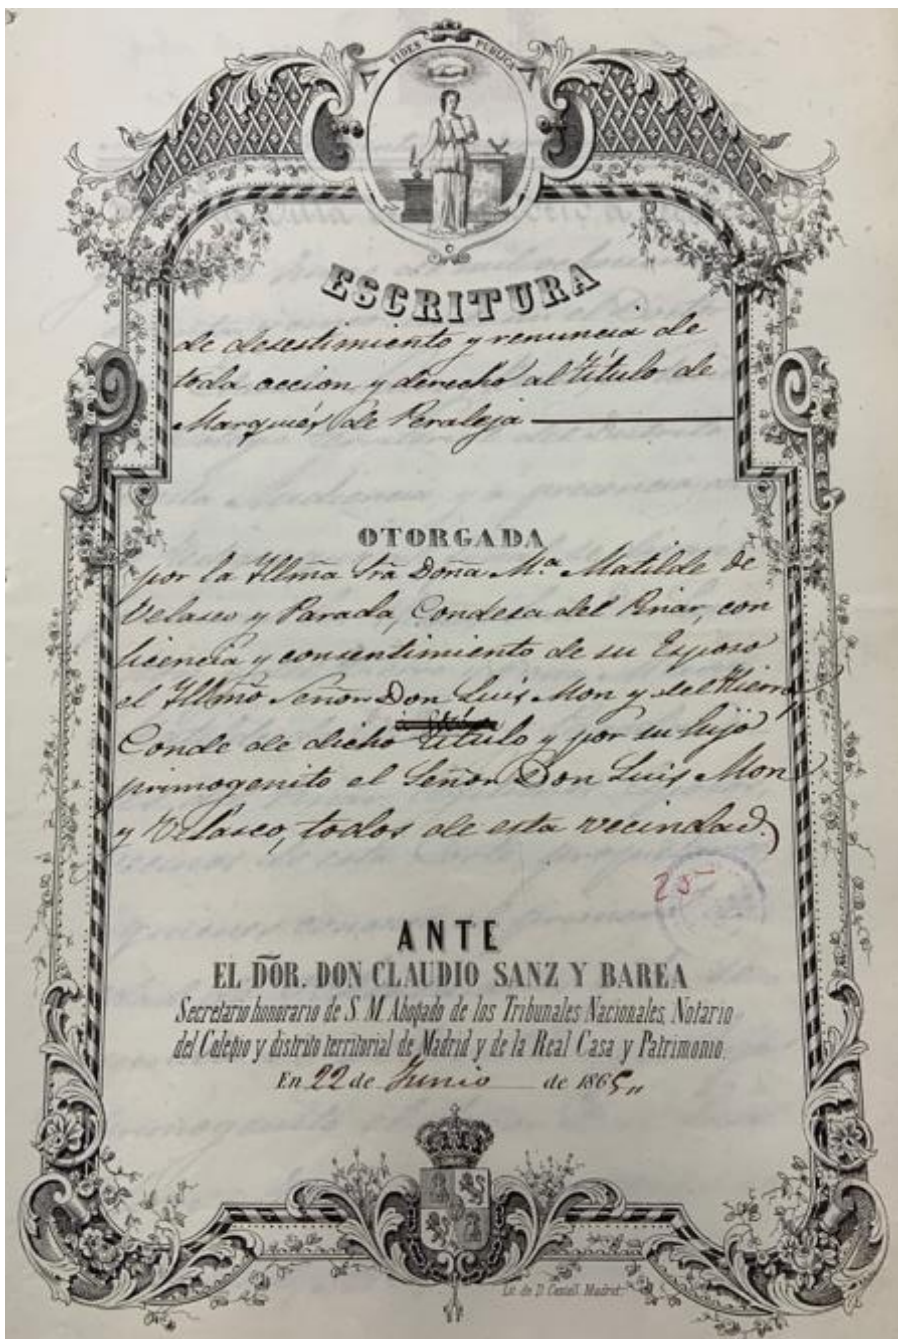 FIDES PUBLICA
ESCRITURA
de desestimiento y renuncia de
toda accion y derecho al Título de
Marqués de Peraleja
OTORGADA
por la Yllma Sra Doña Mª Matilde de
Velasco y Parada, Condesa del Pinar, con
licencia y consentimiento de su Esposo
el Yllmo Señor Don Luis Mon y del Hierro,
Conde de dicho título y por su hijo
primogenito el Señor Don Luis Mon
y Velasco, todos de esta vecindad.
25
ANTE
EL DOR. DON CLAUDIO SANZ Y BAREA
Secretario honorario de S. M. Abogado de los Tribunales Nacionales, Notario
del Colegio y distrito territorial de Madrid y de la Real Casa y Patrimonio.
En 22 de Junio de 1865,,
Lit. de D. Castell. Madrid.